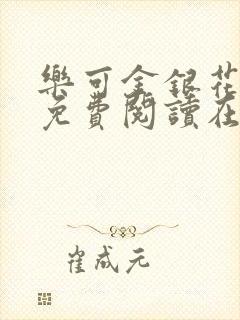 樂可金銀花
免費閱讀在
崔成元